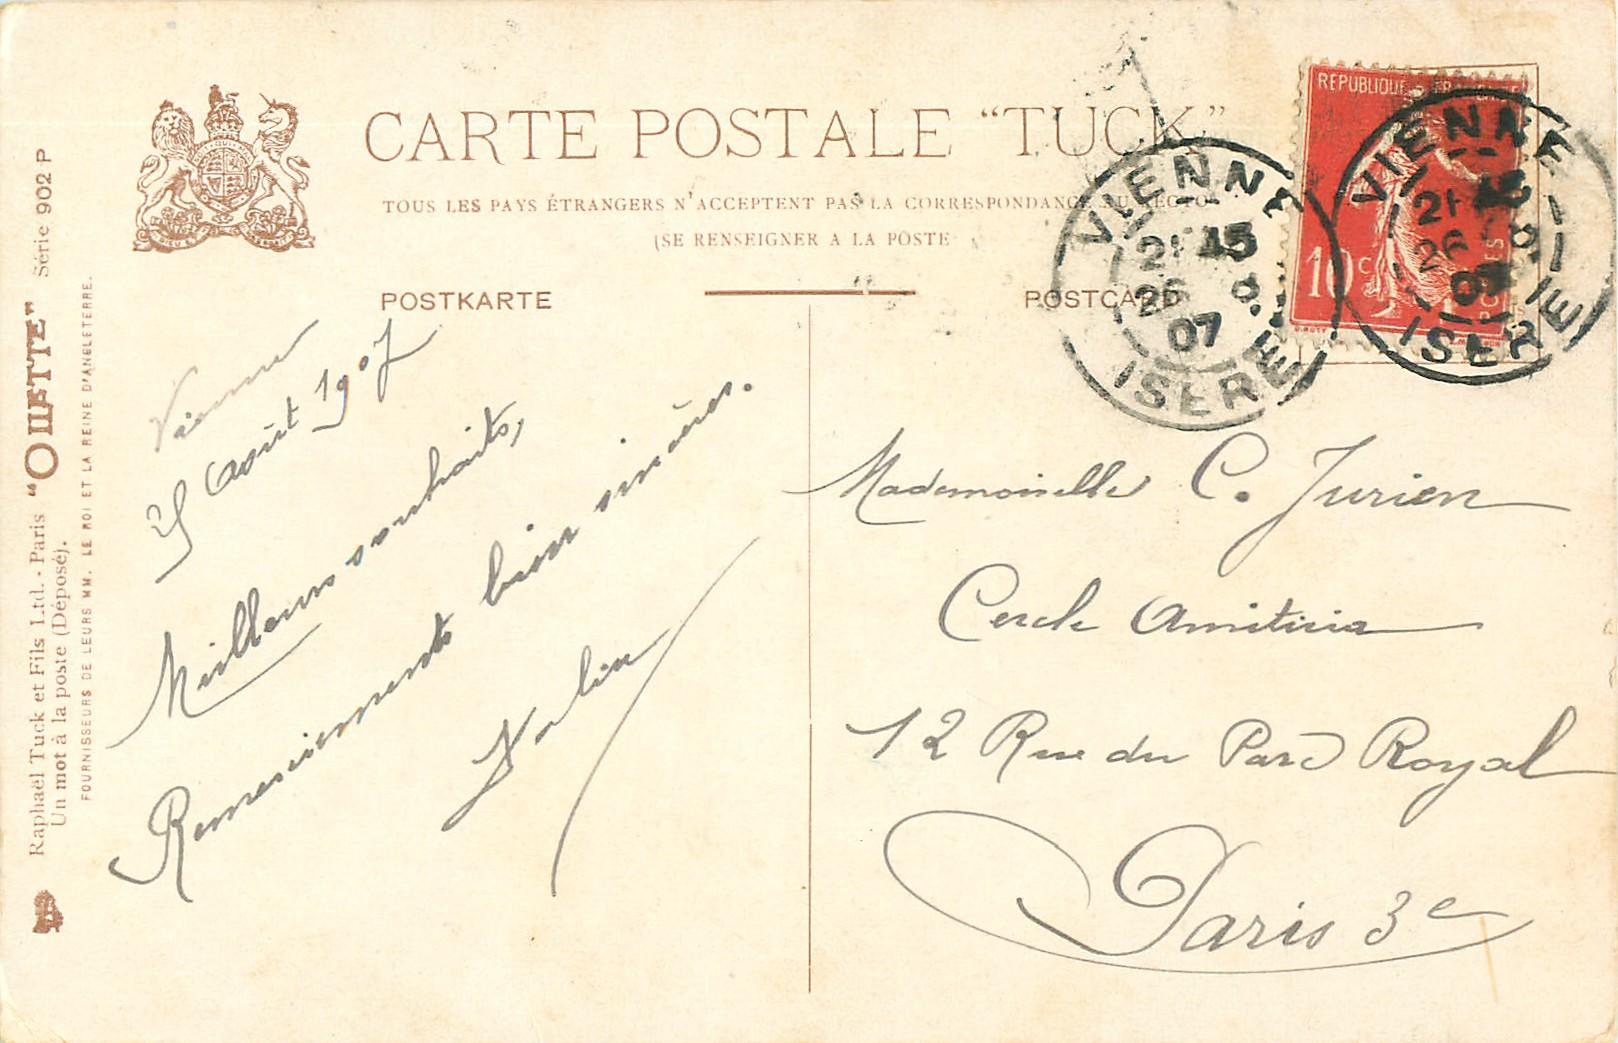 CARTE POSTALE "TUCK"
TOUS LES PAYS ÉTRANGERS N'ACCEPTENT PAS LA CORRESPONDANCE AU RECTO
(SE RENSEIGNER A LA POSTE
POSTKARTE
POSTCARD
Raphaël Tuck et Fils Ltd. - Paris "OILETTE" Série 902 P
Un mot à la poste (Déposé).
FOURNISSEURS DE LEURS MM. LE ROI ET LA REINE D'ANGLETERRE.
REPUBLIQUE FRANCAISE
10 c
POSTES
VIENNE
21 45
26 8
07
ISERE
VIENNE
21 45
26 8
07
ISERE
Vienne
25 Août 1907
Meilleurs souhaits,
Remerciements bien sincères.
Mademoiselle C. Jurien
Cercle Amicitia
12 Rue du Parc Royal
Paris 3e